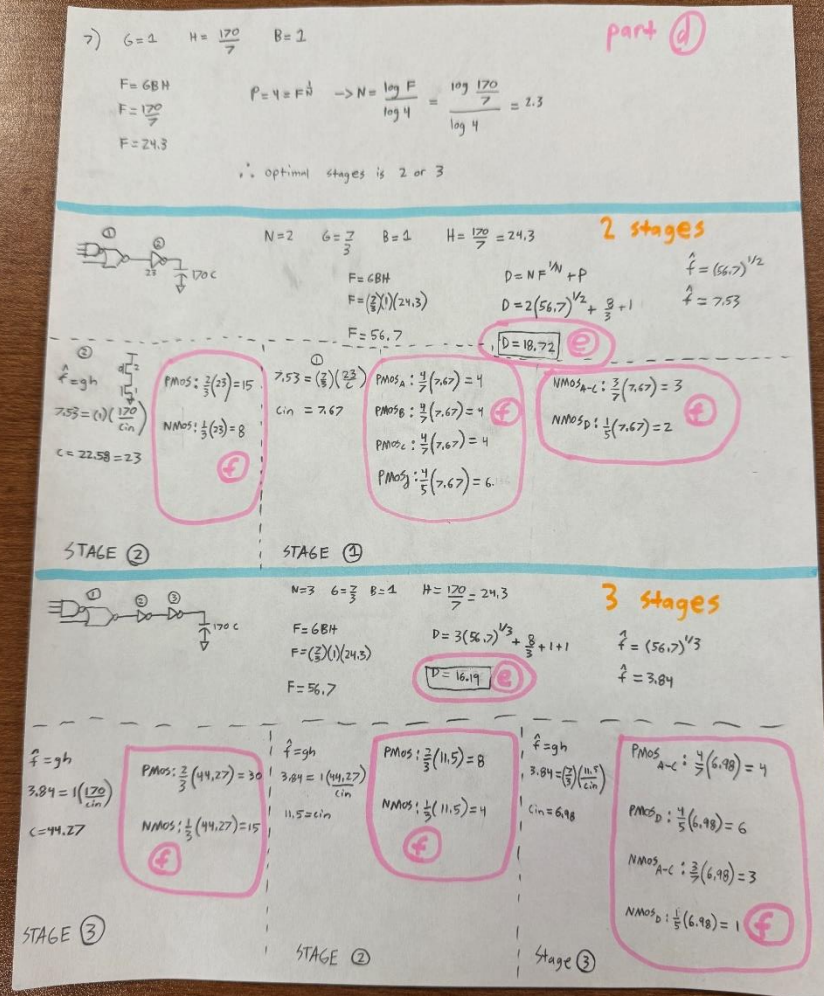 part d
7) G=1 H= 170/7 B=1
F=GBH
F= 170/7
F=24.3
P=4=F^1/N -> N= log F / log 4 = log 170/7 / log 4 = 2.3
∴ optimal stages is 2 or 3
2 stages
① ②
23
170 C
N=2 G=7/3 B=1 H= 170/7 = 24.3
F=GBH
F=(7/3)(1)(24.3)
F=56.7
D=NF^1/N + P
D=2(56.7)^1/2 + 8/3 +1
D=18.72 e
f̂=(56.7)^1/2
f̂=7.53
②
f̂=gh
2
1
7.53=(1)(170/Cin)
C=22.58=23
PMOS: 2/3(23)=15
NMOS: 1/3(23)=8
f
STAGE ②
①
7.53=(7/3)(23/C)
Cin = 7.67
PMOS_A: 4/7(7.67)=4
PMOS_B: 4/7(7.67)=4
PMOS_C: 4/7(7.67)=4
f
NMOS_A-C: 3/7(7.67)=3
NMOS_D: 1/5(7.67)=2
f
STAGE ①
3 stages
① ② ③
170 C
N=3 G=7/3 B=1 H= 170/7 = 24.3
F=GBH
F=(7/3)(1)(24.3)
F=56.7
D=3(56.7)^1/3 + 8/3 +1+1
D=16.19 e
f̂=(56.7)^1/3
f̂=3.84
f̂=gh
3.84=1(170/Cin)
C=44.27
PMOS: 2/3(44.27)=30
NMOS: 1/3(44.27)=15
f
STAGE ③
f̂=gh
3.84=1(44.27/Cin)
11.5=Cin
PMOS: 2/3(11.5)=8
NMOS: 1/3(11.5)=4
f
STAGE ②
f̂=gh
3.84=(7/3)(11.5/Cin)
Cin=6.98
PMOS_A-C: 4/7(6.98)=4
PMOS_D: 4/5(6.98)=6
NMOS_A-C: 3/7(6.98)=3
NMOS_D: 1/5(6.98)=1
f
Stage ③